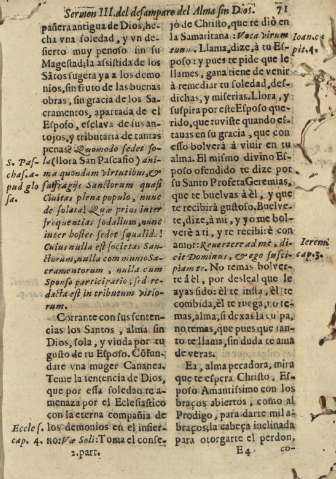 Sermon III. del desamparo del Alma sin Dios. 71
pañera antigua de Dios, he-
cha vna soledad, y vn de-
sierto muy penoso sin su
Magestad, la asistida de los
Sãtos sugeta ya a los demo
nios, sin fruto de las buenas
obras, sin gracia de los Sa-
cramentos, apartada de el
Esposo, esclava de sus an-
tojos, y tributaria de tantas
penas Quomodo sedet so-
S. Pas- la (llora San Pascasio) ani-
chas. a- ma quondam virtutibus, &
pud glo suffragijs Sanctorum quasi
sa. Civitas plena populo, nunc
de solata! Quæ prius inter
frequentias sodalium, nunc
inter hostes sedet squalid.!
Cuius nulla est societas San-
ctorum, nulla communio Sa-
cramentorum, nulla cum
Sponso participatio; sed re-
dacta est in tributum vitio-
rum.
Corrante con sus senten-
cias los Santos, alma sin
Dios, sola, y viuda por tu
gusto de tu Esposo. Cõfun-
dare vna muger Cananea.
Teme la sentencia de Dios,
que por essa soledad te a-
menaza por el Eclesiastico
con la eterna compañia de
Eccles. los demonios en el infier-
cap. 4. no: Væ Soli: Toma el conse-
2. part.
jo de Christo, que te diò en
la Samaritana: Voca virum Ioan. c
tuum. Llama, dize, à tu Es- pit. 4.
poso: y pues te pide que le
llames, gana tiene de venir
à remediar tu soledad, des-
dichas, y miserias. Llora, y
suspira por este Esposo que-
rido, que tuviste quando es-
tauas en su gracia, que con
esso bolverà à viuir en tu
alma. El mismo divino Es-
poso ofendido te dize por
su Santo Profeta Geremias,
que te buelvas à èl, y que
te recibirà gustoso. Buelve-
te, dize, à mi, y yo me bolve
rè à ti, y te recibirè con
amor: Revertere ad me, di- Ieremi
cit Dominus, & ego susci- cap. 3.
piam te. No temas bolver-
te à èl, por desleal que le
ayas sido: èl te insta, èl te
combida, èl te ruega, no te-
mas, alma, si dexas la culpa,
no temas, que pues que tan-
to te llama, sin duda te ama
de veras.
Ea, alma pecadora, mira
que te espera Christo, Es-
poso Amantissimo con los
braços abiertos, como al
Prodigo, para darte mil a-
braços, la cabeça inclinada
para otorgarte el perdon,
E 4 co-